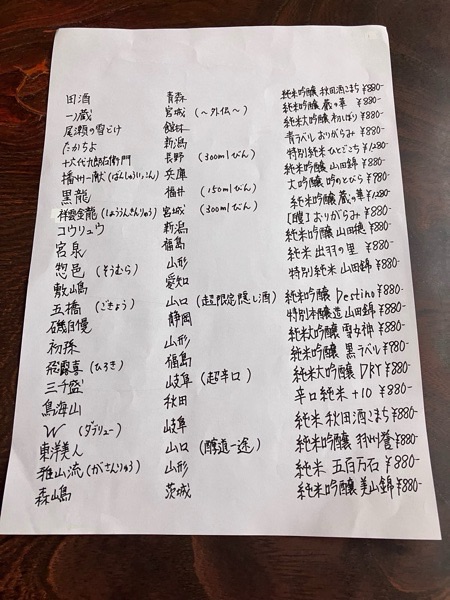 田酒 青森 純米吟醸 秋田酒こまち ¥880-
一ノ蔵 宮城 (〜外伝〜) 純米吟醸 蔵の華 ¥880-
尾瀬の雪どけ 館林 純米大吟醸 初しぼり ¥880-
たかちよ 新潟 青ラベル おりがらみ ¥880-
十六代九郎右衛門 長野 (300mlびん) 特別純米 ひとごこち ¥1,280-
播州一献(ばんしゅういっこん) 兵庫 純米吟醸 山田錦 ¥880-
黒龍 福井 (150mlびん) 大吟醸 吟のとびら ¥880-
祥雲金龍(しょううんきんりゅう) 宮城 (300mlびん) 純米吟醸 蔵の華 ¥1,280-
コウリュウ 新潟 おりがらみ ¥880-
宮泉 福島 純米吟醸 山田穂 ¥880-
惣邑 (そうむら) 山形 純米 出羽の里 ¥880-
敷嶋 愛知 特別純米 山田錦 ¥880-
五橋 (ごきょう) 山口 (超限定隠し酒) 純米吟醸 Destino ¥880-
磯自慢 静岡 特別本醸造 山田錦 ¥880-
初孫 山形 純米大吟醸 雪女神 ¥880-
飛露喜 (ひろき) 福島 純米吟醸 黒ラベル ¥880-
三千盛 岐阜 (超辛口) 純米大吟醸 DRY ¥880-
鳥海山 秋田 辛口純米 +10 ¥880-
W (ダブリュー) 岐阜 純米 秋田酒こまち ¥880-
東洋美人 山口 (醸道一途) 純米吟醸 羽州誉 ¥880-
雅山流(がさんりゅう) 山形 純米 五百万石 ¥880-
森嶋 茨城 純米吟醸 美山錦 ¥880-